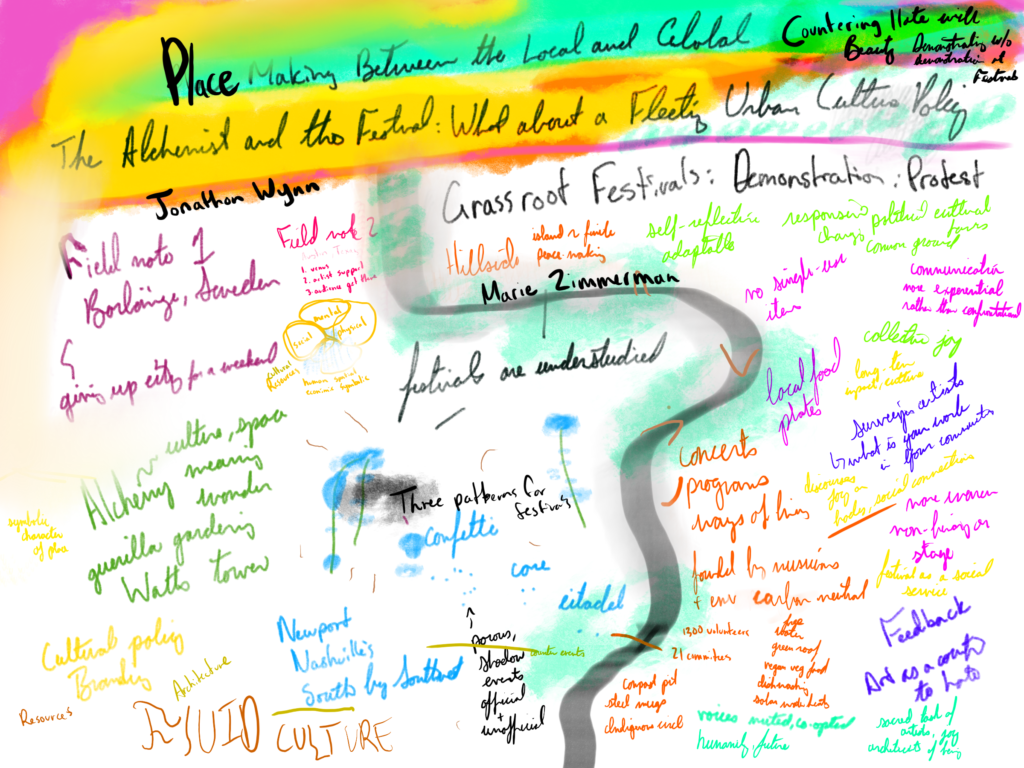 Place Making Between the Local and Global
Countering Hate with
Beauty
Demonstrating w/o
demonstration at
Festivals
The Alchemist and the Festival: What about a Fleeting Urban Culture Policy
Jonathan Wynn
Grassroot Festivals: Demonstration: Protest
Field note 1
Borlänge, Sweden
giving up city for a weekend
Field note 2
1. venue
2. artist support
3. audience get there
mental
social
physical
cultural
resources
Hillside
peace making
self-reflective
adaptable
responsive
change
political cultural
common ground
Marie Zimmerman
no single-use
item
communication
more exponential
rather than confrontational
festivals are understudied
collective joy
local food
plates
long-term
surveying artists
what is your work
in your community
Alchemy
culture, space
meaning
wonder
guerilla gardening
Watts tower
symbolic
character
of place
Three patterns for
festivals
confetti
core
citadel
concerts
programs
ways of living
joy in
social connections
more women
non-binary on
stage
founded by musicians
+ env carbon neutral
festival as a social
service
1300 volunteers
21 committees
free
water
green roof
vegan veg food
dishwashing
compost pit
Cultural policy
Branding
Architecture
Resources
FLUID CULTURE
Newport
Nashville's
South by Southwest
porous,
shadow
events
official
+
unofficial
counter events
Feedback
Art as a counter
to hate
voices muted, co-opted
humanity, future
sacred task of
artists, joy
architects of being